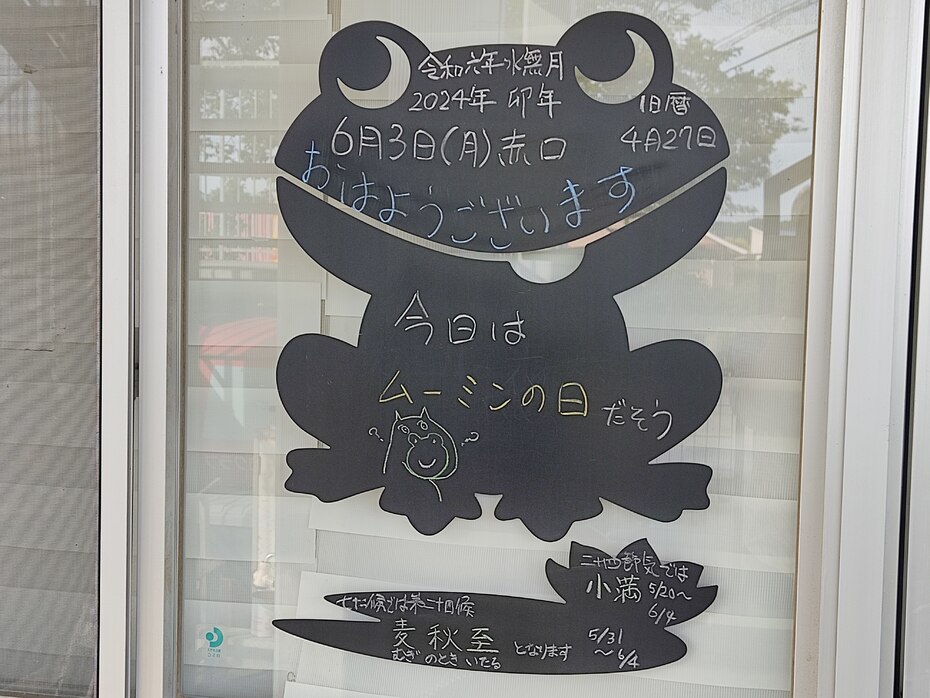 令和六年水無月
2024年 卯年
旧暦
6月3日(月)赤口
4月27日
おはようございます
今日は
ムーミンの日だそう
? ?
二十四節気では
小満 5/20～
6/4
七十二候では第二十四候
麦秋至 となります
むぎのときいたる
5/31
～6/4